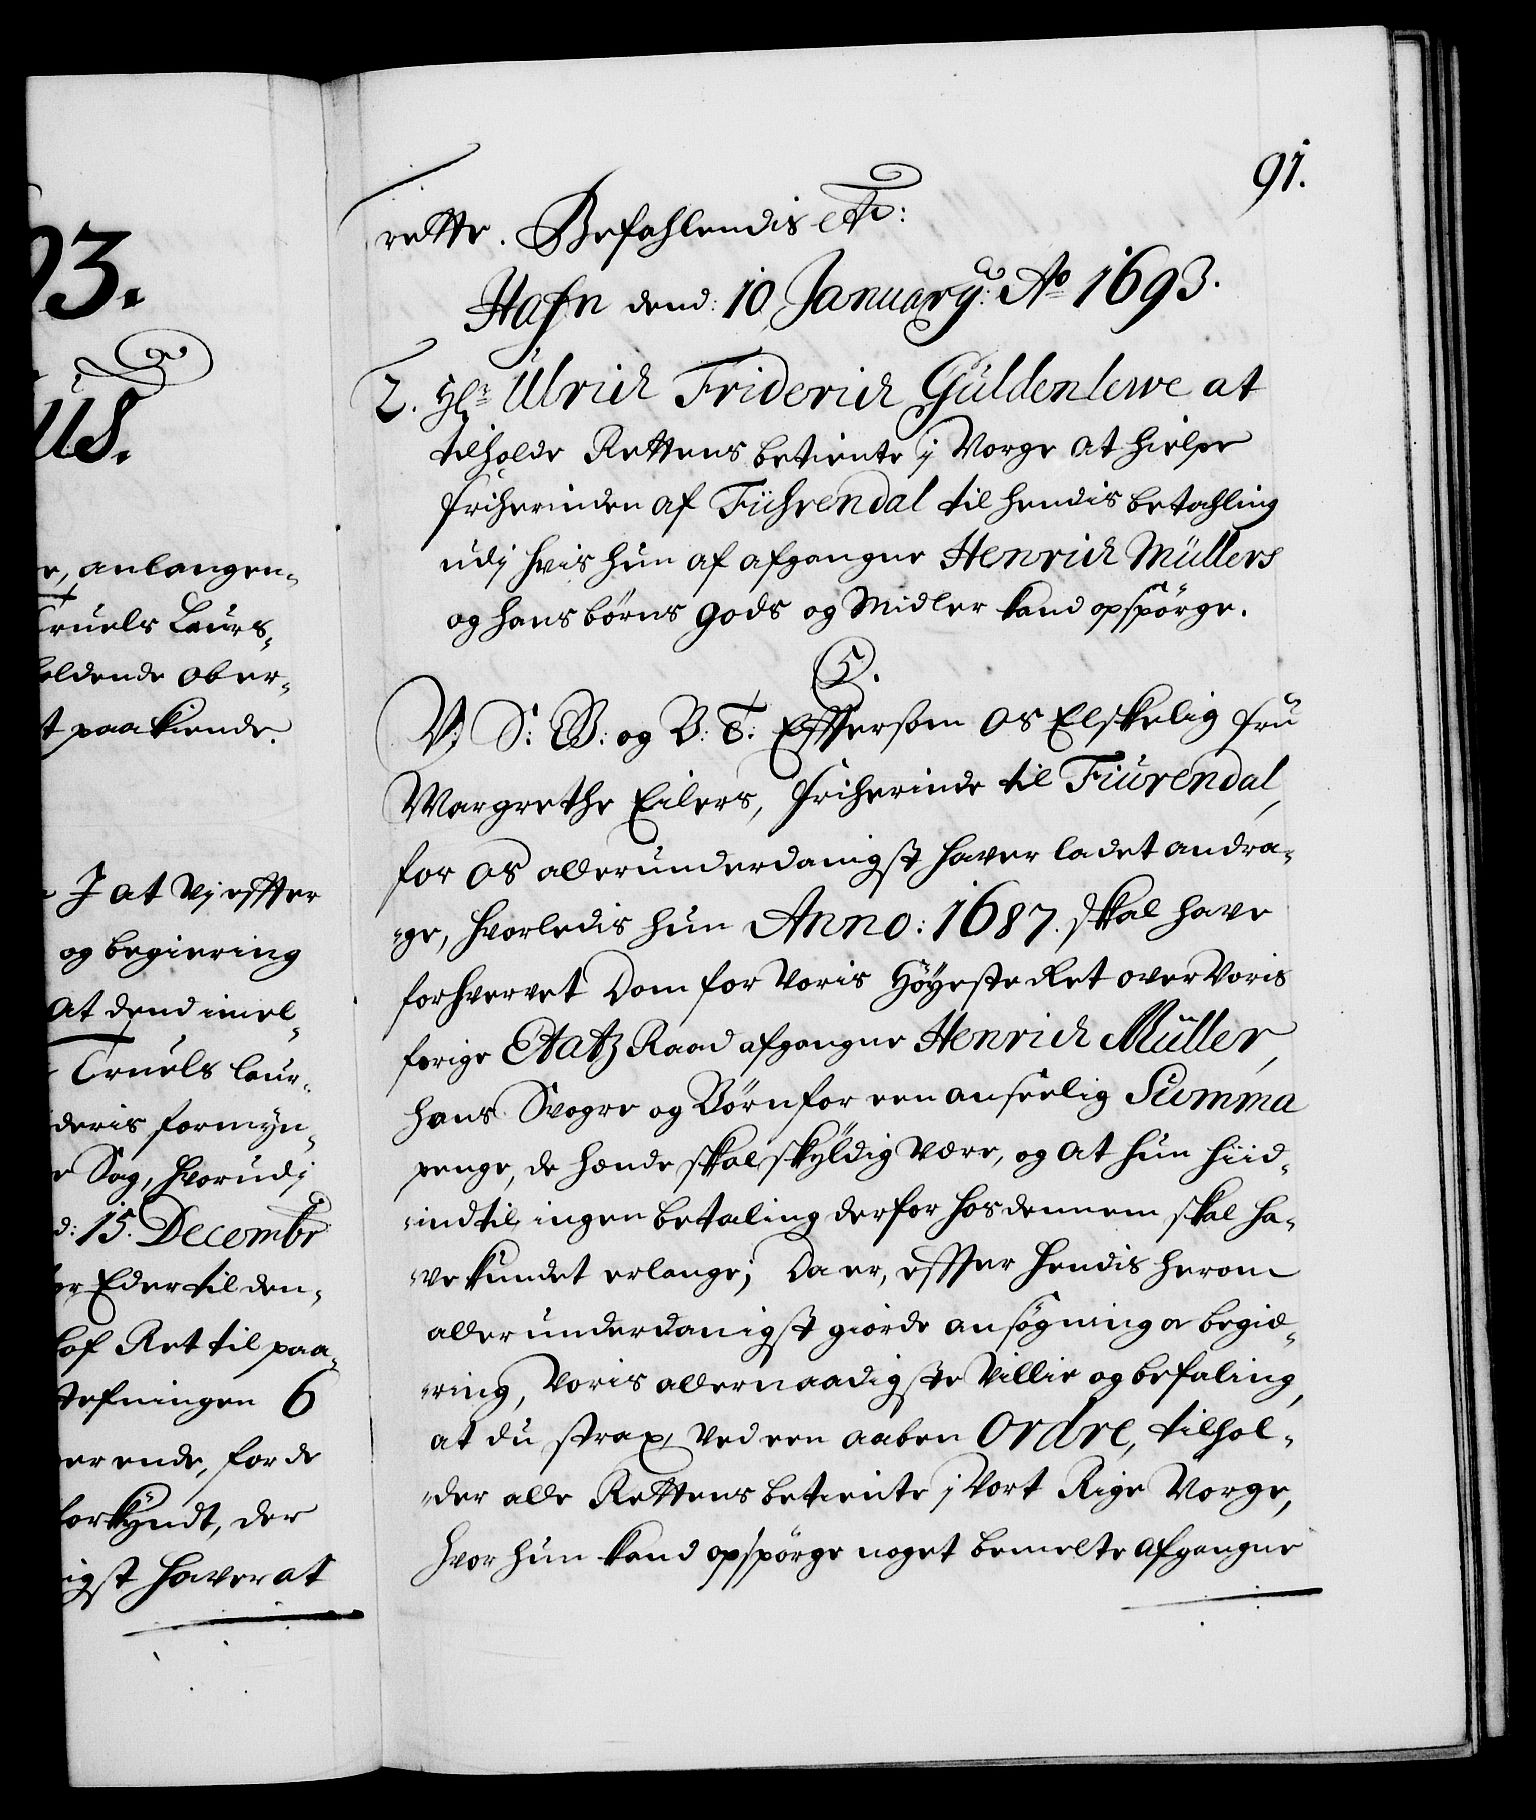 93.
us.
e, anlangen-
Truels Laurs-
holdende Ober-
t paakiende.
I at Vj effter
og begiering
at dend imel-
Truels Laur-
deris formyn-
e Sag, hvorudj
d: 15. Decembr
er Eder til den-
hof Ret til paa-
tefningen 6
er ende, for de
forkyndt, der
igst haver at
91.
rette. Befahlendis etc:
Hafn dend: 10 January: Ao 1693.
2. Hr: Ulrich Friderich Güldenlewe at
tilholde Rettens betiente j Norge at hielpe
friherinden af Führendal til hendis betahling
udj hvis hun af afgangne Henrich Müllers
og hans børns gods og Midler kand opspørge.
C5.
V: S: G: og B: T: Effterson Os Elskelig fru
Margrethe Eilers, friherinde til Fiurendal,
for Os allerunderdanigst haver ladet andra-
-ge, hvorledis hun Anno: 1687. skal have
forhvervet Dom for Voris Høyeste Ret over Voris
forige Etatz Raad afgangne Henrich Müller,
hans Svogre og Børn for een anseelig Summa
penge, de hende skal skyldig være, og at hun hiid-
-indtil ingen betaling derfor hos dennem skal ha-
-ve kundet erlange; Da er, effter hendis herom
allerunderdanigst giorde ansøgning oc begie-
-ring, Voris allernaadigste Villie og befaling,
at du strax, ved een aaben Ordre, tilhol-
-der alle Rettens betiente j Vort Rige Norge,
hvor hun kand opspørge noget bemelte afgangne